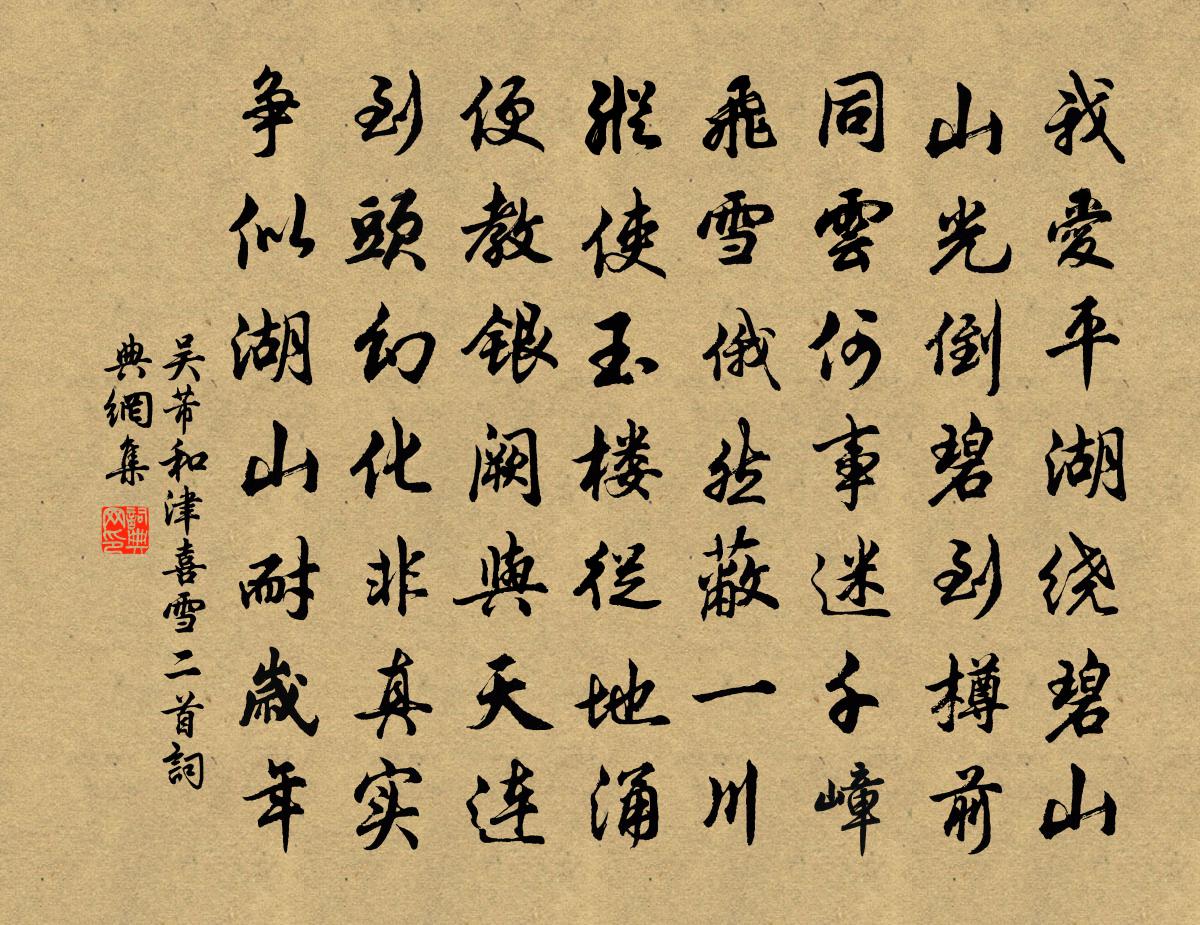 我愛平湖绕碧山
山光倒碧到樽前
同雲何事迷千嶂
飛雪俄然蔽一川
縱使玉楼從地涌
便教银阙與天連
到頭幻化非真实
争似湖山耐歲年
吴芾和津喜雪二首詞
典網集
詞典
网印